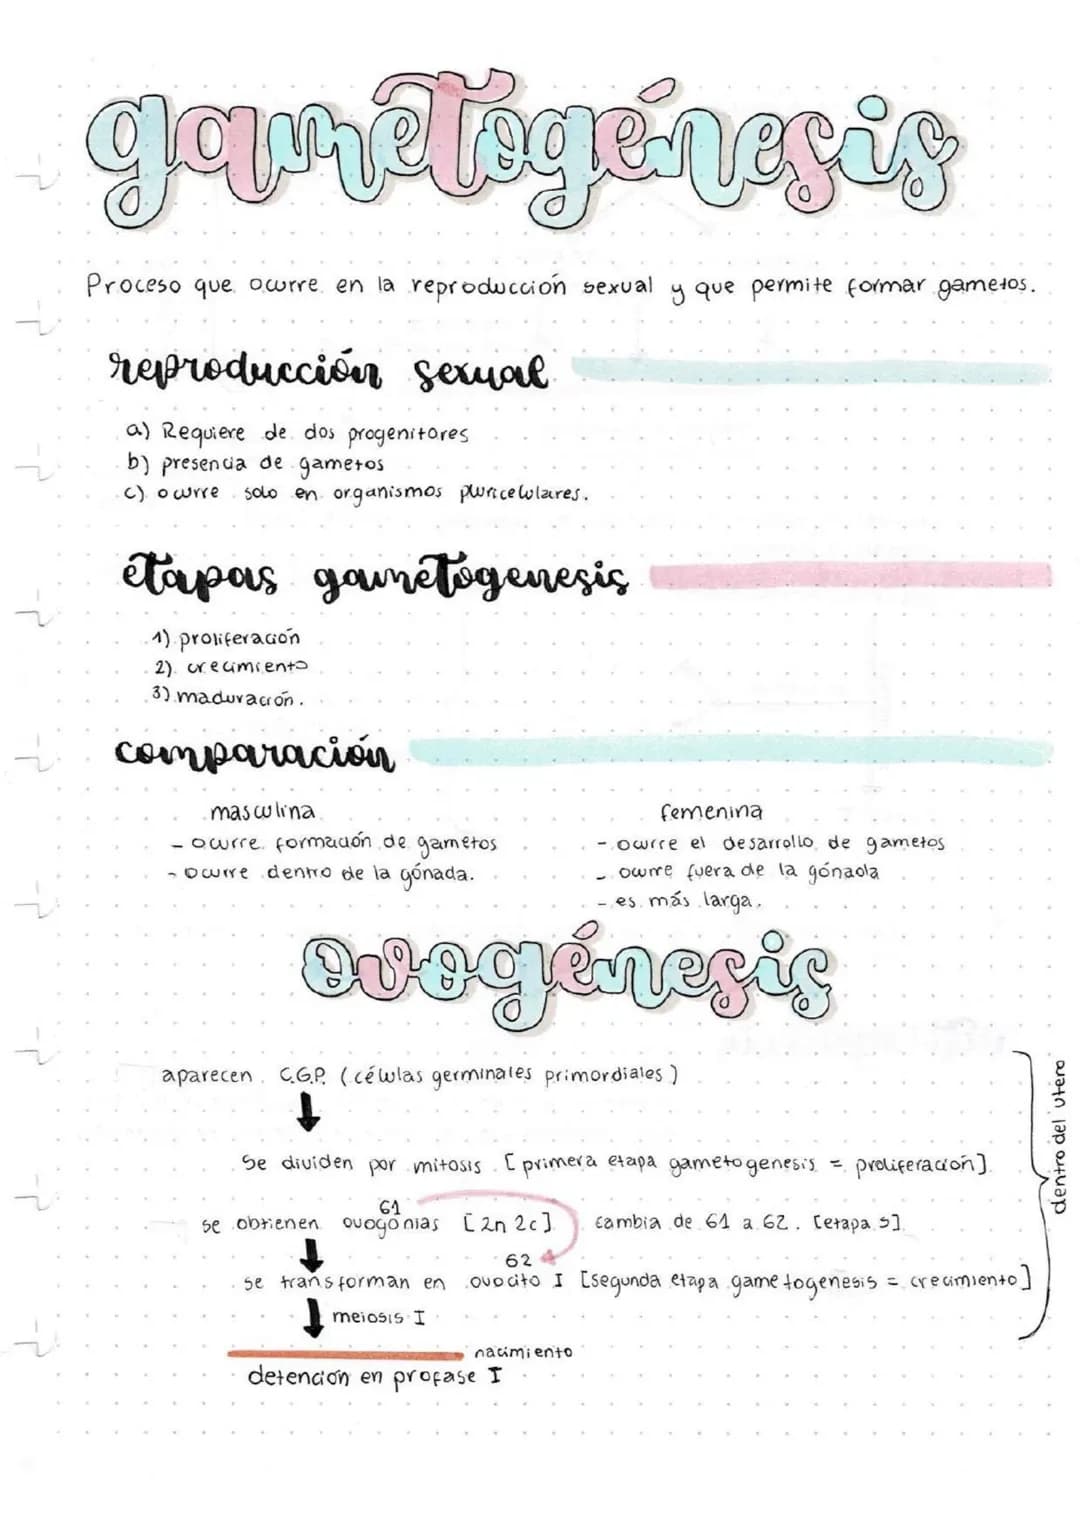 gametogénesis
Proceso que ocurre en la reproducción sexual y que permite formar gametos.
reproducción sexual
a) Requiere de dos progenitores
b) presencia de gametos
c) ocurre solo en organismos pluricelulares.
etapas gametogenesis
1) proliferación
2) crecimiento
3) maduración.
comparación
masculina
- ocurre formación de gametos
- ocurre dentro de la gónada.
femenina
- ocurre el desarrollo de gametos
- ocurre fuera de la gónada
- es más larga.
ovogénesis
aparecen C.G.P. (células germinales primordiales)
Se dividen por mitosis [primera etapa gametogenesis = proliferación]
G1
se obtienen ovogonias [2n 2c] cambia de G1 a G2. [etapa S]
G2
se transforman en ovocito I [segunda etapa gametogenesis = crecimiento]
meiosis I
nacimiento
detención en profase I
dentro del utero